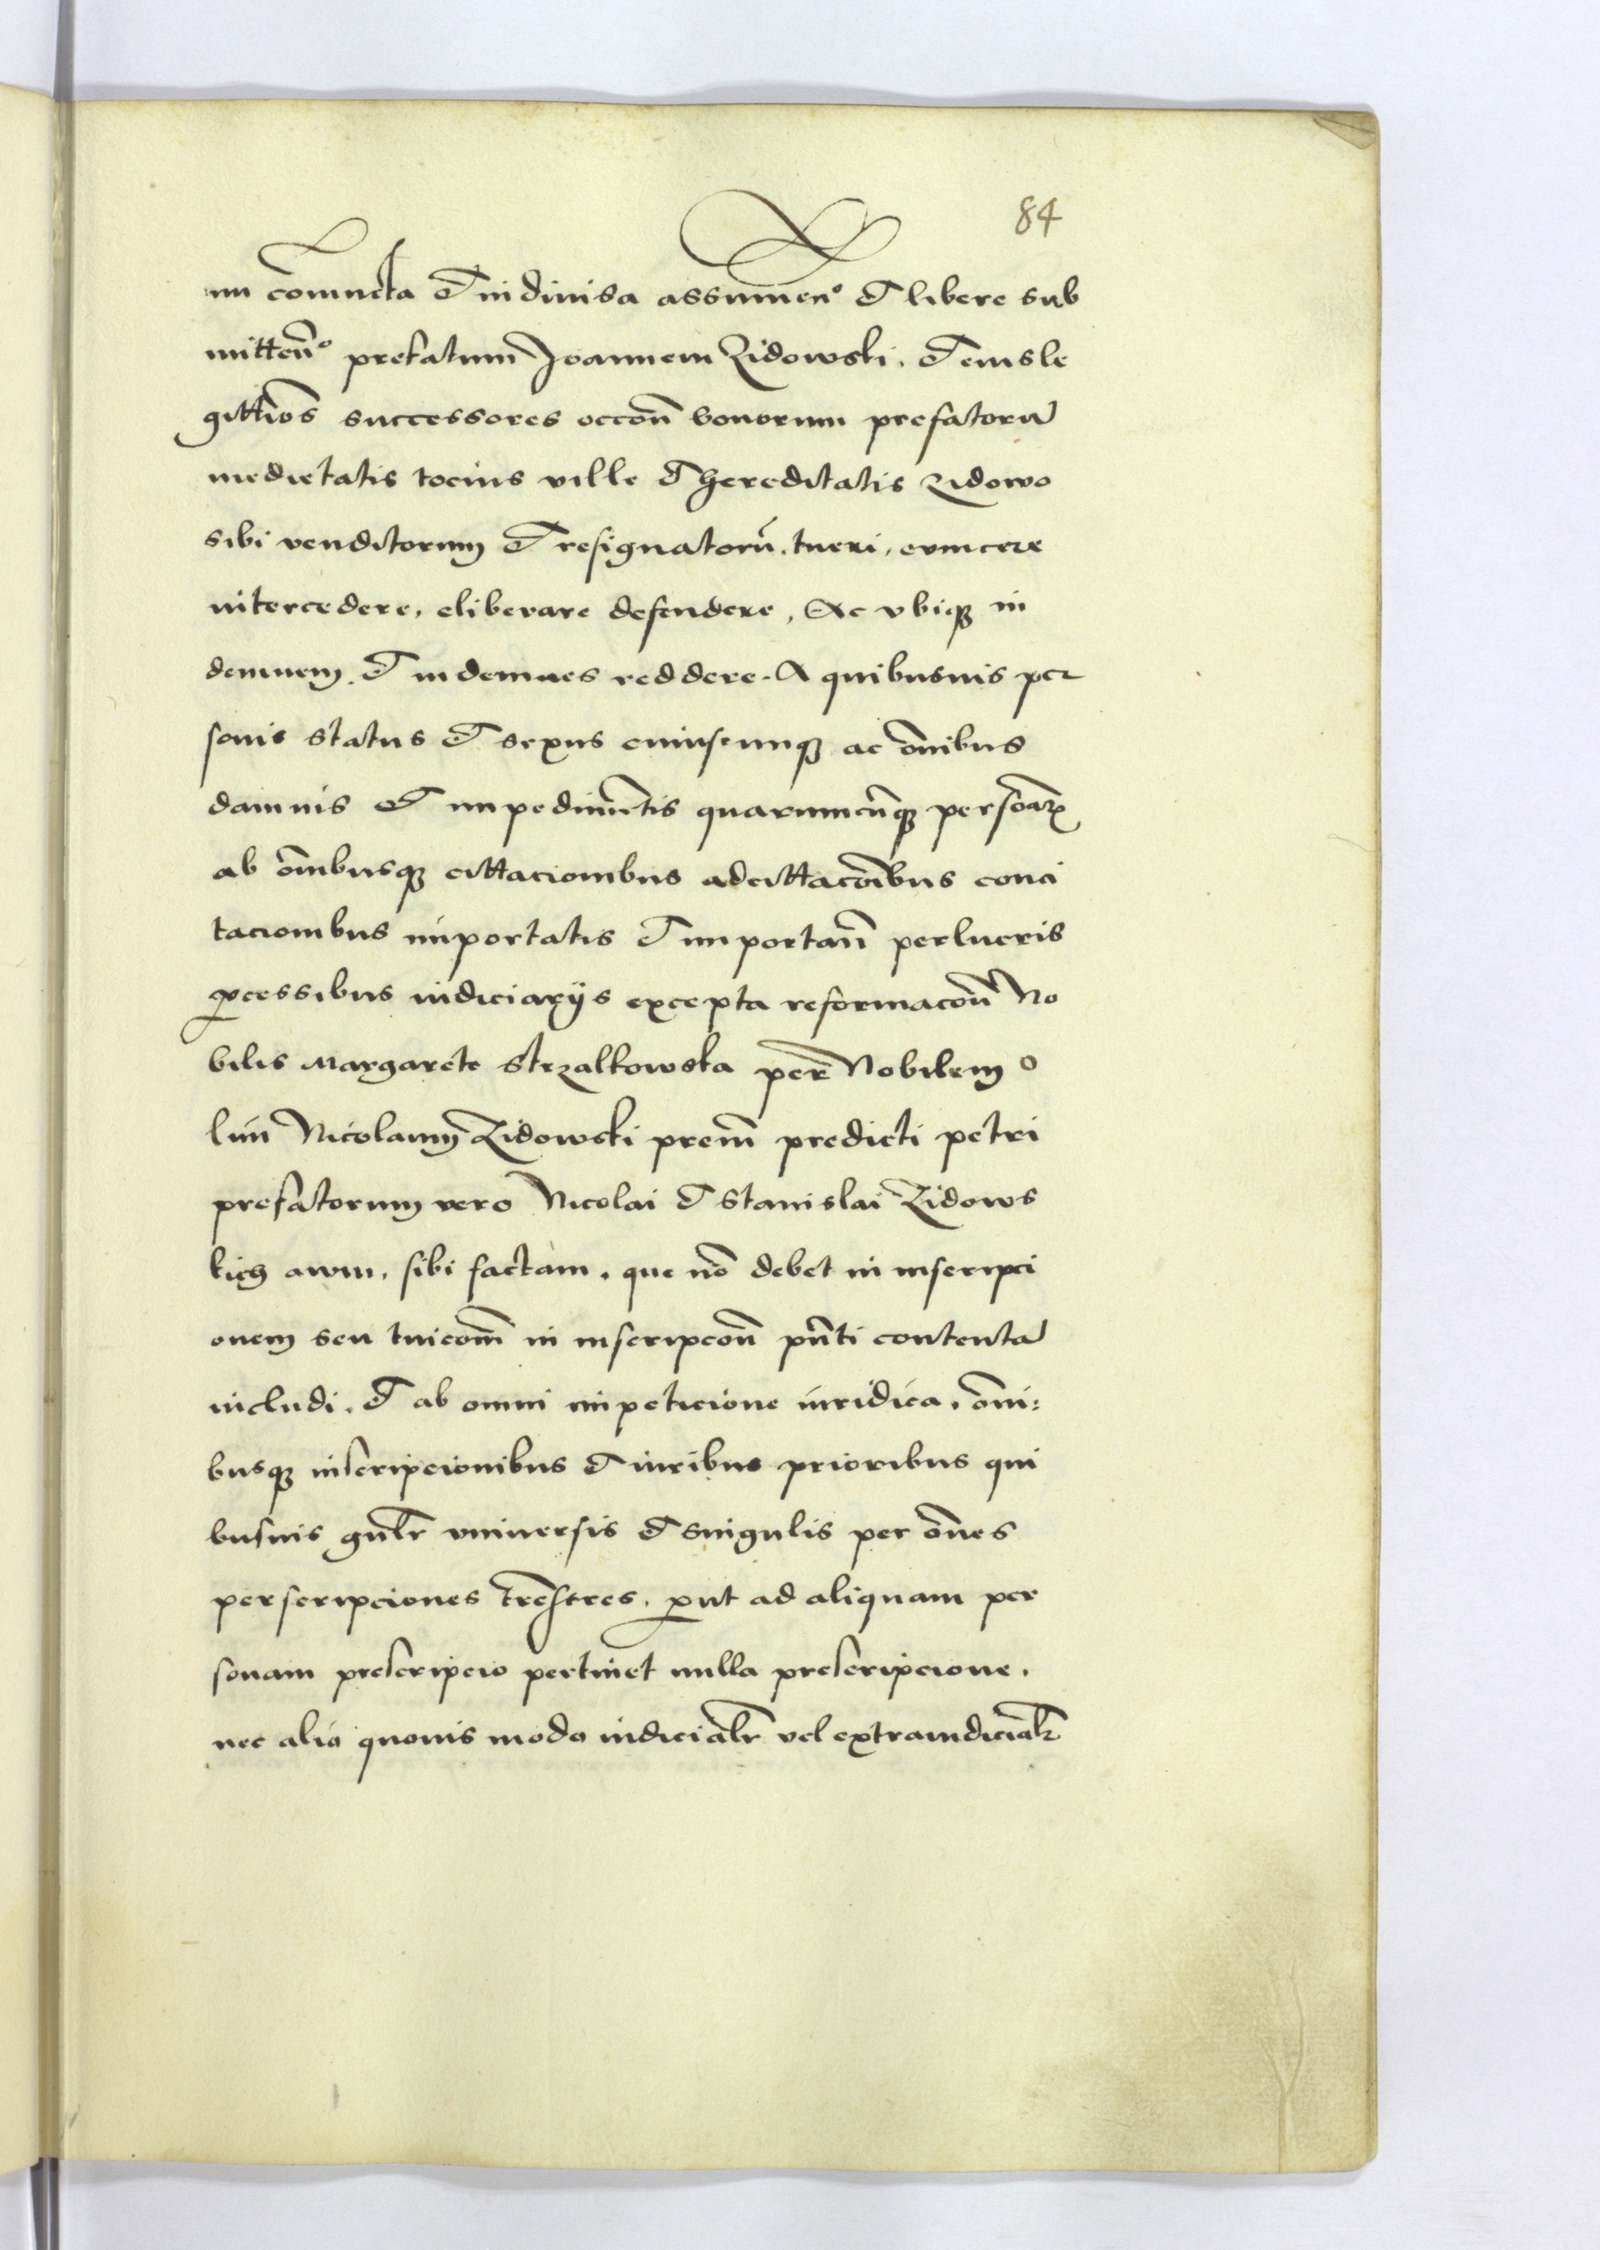 84
nu coniuncta et indivisa assumen° et libere sub
mitten° prefatum Joannem Zidowski. et eius le
gittios successores occon bonorum prefatoru
medietatis tocius ville et hereditatis Zidowo
sibi venditorum et resignatoru. tueri, evincere
intercedere, eliberare defendere, Ac ubiq in
demnem. et indemnes reddere. A quibusvis per
sonis status et sexus cuiuscunq ac omibus
damnis et impedimetis quarumcunq personar
ab omibusq cittacionibus adcittacoibus conci
tacionibus importatis et importan perlucris
processibus iudiciariis excepta reformacon No
bilis Margarete Strzalkowska per Nobilem o
lim Nicolaum Zidowski prem predicti petri
prefatorum vero Nicolai et Stanislai Zidows
kich avum, sibi factam. que no debet in inscripci
onem seu tuicom in inscripcon pnti contenta
includi. et ab omni impeticione iuridica, omi:
busq inscripcionibus et iuribus prioribus qui
busvis gnlr universis et singulis per omes
perscripciones trestres. prout ad aliquam per
sonam prescripcio pertinet nulla prescripcione.
nec alio quovis modo iudicialr vel extraiudicialr